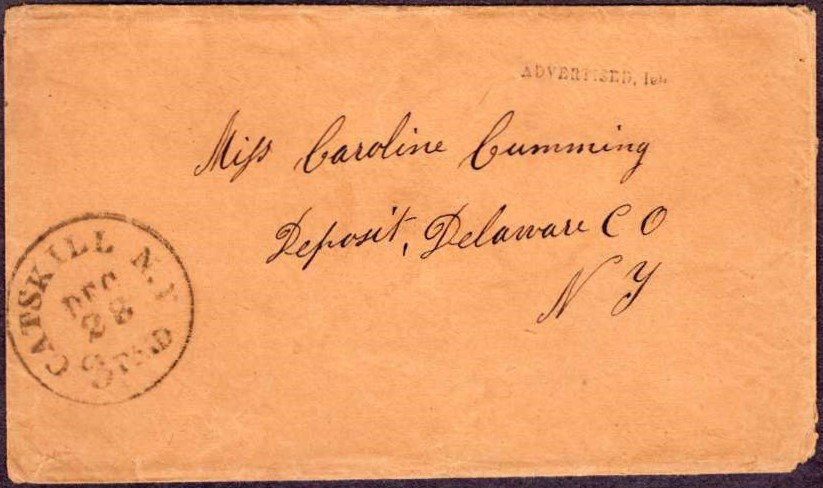 ADVERTISED, 1ct.
Miss Caroline Cumming
Deposit, Delaware C O
N Y
CATSKILL N.Y
DEC
28
3 PAID